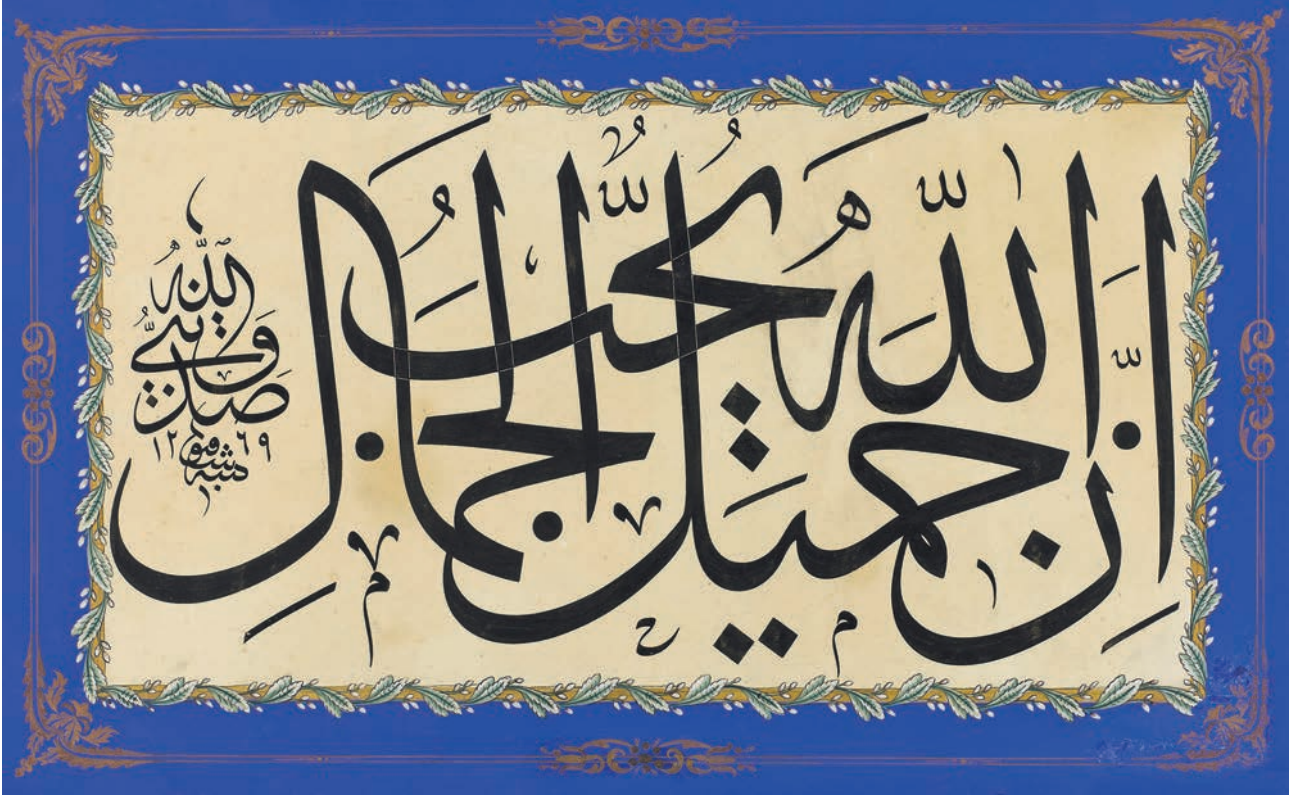 اِنَّ اللّٰهَ جَمِيلٌ يُحِبُّ الْجَمَالِ
صدق
الله
١٢٦٩